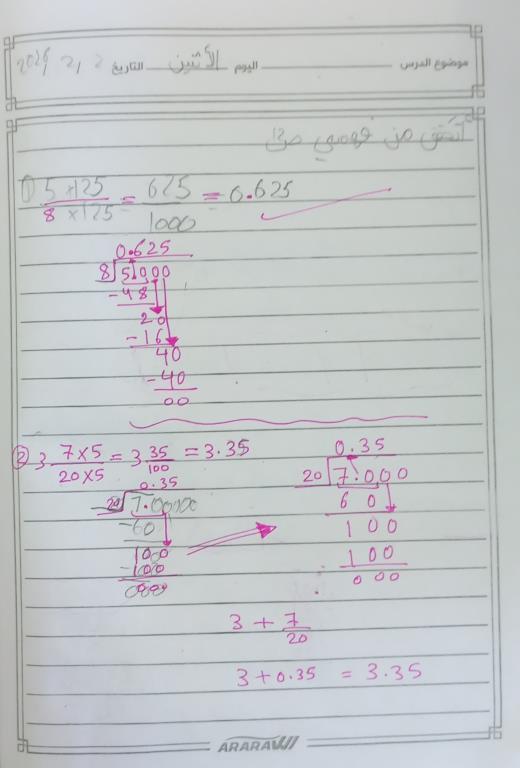 موضوع الدرس الأثنين اليوم التاريخ 2 / 2 / 2026
أتحقق من فهمي ص12
1) 5 ×125 / 8 ×125 = 625 / 1000 = 0.625
0.625
8 5.000
-48
20
-16
40
-40
00
2) 3 7×5 / 20×5 = 3 35 / 100 = 3.35
0.35
20 7.00
-60
100
-100
000
0.35
20 7.000
60
100
100
000
3 + 7 / 20
3 + 0.35 = 3.35
ARARAWI